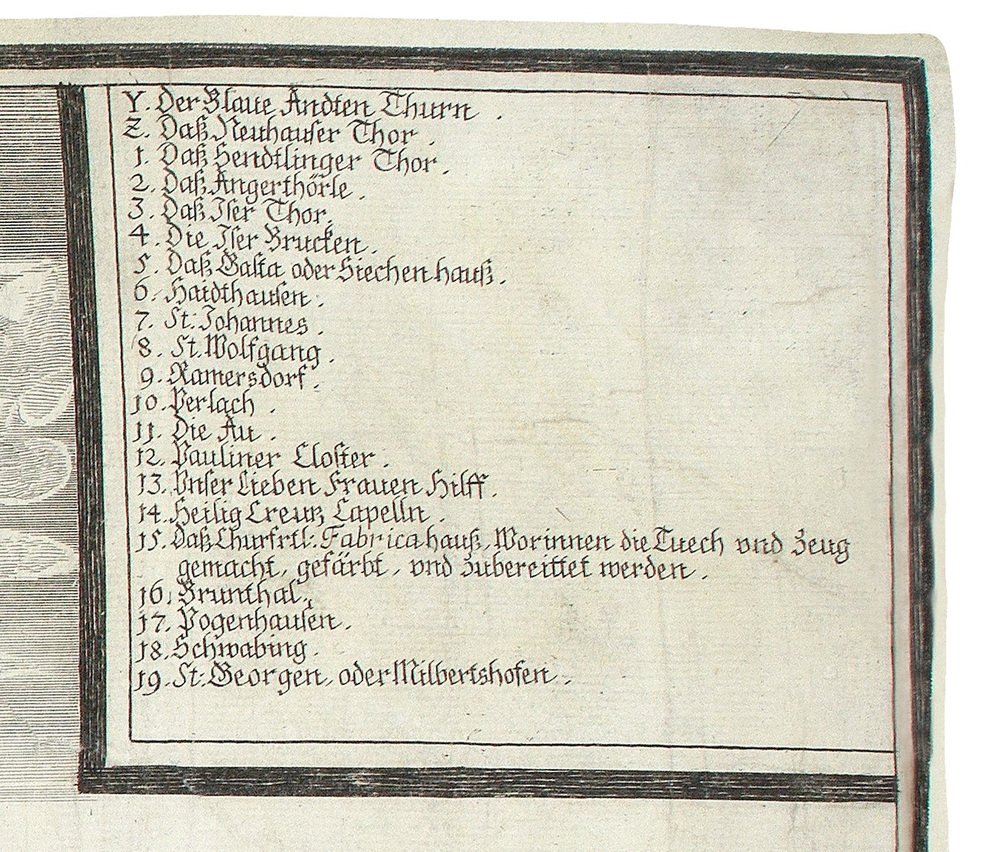 Y. Der Blaue Andten Thurn .
Z. Daß Neuhauser Thor .
1. Daß Sendtlinger Thor .
2. Daß Angerthörle .
3. Daß Iser Thor .
4. Die Iser Brucken .
5. Daß Gasta oder Siechen hauß .
6. Haidthausen .
7. St. Johannes .
8. St. Wolfgang .
9. Ramersdorf .
10. Perlach .
11. Die Au .
12. Pauliner Closter .
13. Vnser Lieben Frauen Hilff .
14. Heilig Creutz Capelln .
15. Daß Churfrtl: Fabrica hauß, Worinnen die Tuech vnd Zeug
gemacht, gefärbt, vnd Zubereittet werden .
16. Brunthal .
17. Pogenhausen .
18. Schwabing .
19. St: Georgen, oder Milbertshofen .